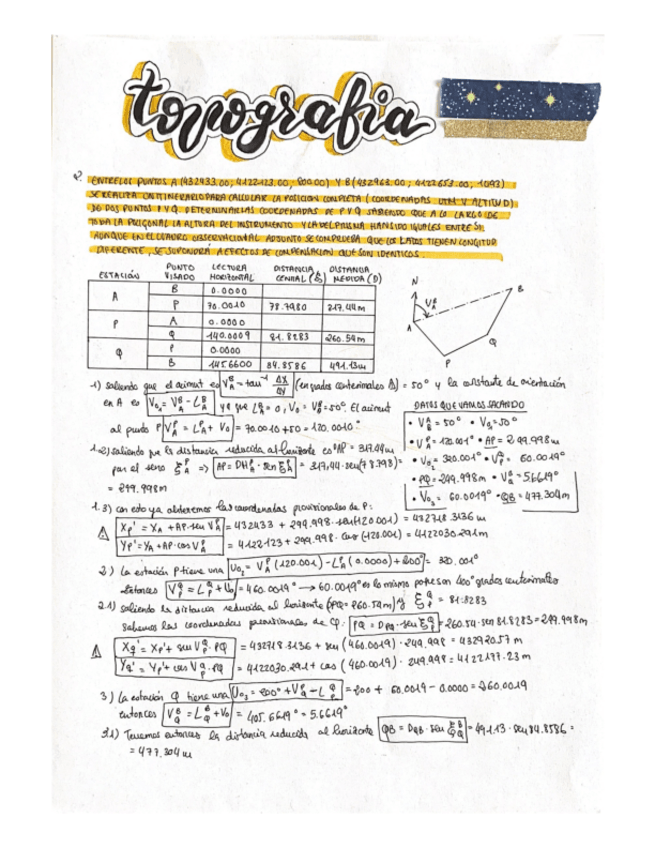 topografia
2. ENTRE LOS PUNTOS A (432433.00; 4122123.00; 800.00) Y B (432963.00; 4122653.00; 1093)
SE REALIZA UN ITINERARIO PARA CALCULAR LA POSICION COMPLETA (COORDENADAS UTM Y ALTITUD)
DE DOS PUNTOS P Y Q. DETERMINAR LAS COORDENADAS DE P Y Q SABIENDO QUE A LO LARGO DE
TODA LA POLIGONAL LA ALTURA DEL INSTRUMENTO Y LA DEL PRISMA HAN SIDO IGUALES ENTRE SÍ.
AUNQUE EN EL CUADRO OBSERVACIONAL ADJUNTO SE COMPRUEBA QUE LOS LADOS TIENEN LONGITUD
DIFERENTE, SE SUPONDRÁ A EFECTOS DE COMPENSACION QUE SON IDENTICOS.
ESTACIÓN PUNTO VISADO LECTURA HORIZONTAL DISTANCIA CENITAL DISTANCIA MEDIDA (D)
A B 0.0000
P 70.0010 78.7980 317.44m
P A 0.0000
Q 140.0009 81.8283 260.54m
Q P 0.0000
B 145.6600 84.8586 491.13m
N
B
A
P
Q
1) sabiendo que el acimut es V_A^B = tan⁻¹ ΔX/ΔY (en grados centesimales) = 50° y la constante de orientación
en A es V₀₁ = V_A^B - L_A^B ya que L_A^B = 0, V₀ = V_A^B = 50°. El acimut
al punto P V_A^P = L_A^P + V₀ = 70.0010 + 50 = 120.0010°
DATOS QUE VAMOS SACANDO
• V_A^B = 50° • V₀₁ = 50°
• V_A^P = 120.001° • AP = 299.998m
• V₀₂ = 320.001° • V_P^Q = 60.0019°
• PQ = 249.998m • V_Q^B = 5.6619°
• V₀₃ = 60.0019° • QB = 477.304m
1.2) sabiendo que la distancia reducida al horizonte es AP = 317.44m
por el seno ξ_A^P => AP = DH_A^P · sen ξ_A^P = 317,44 · sen(78.798) =
= 299.998m
1.3) con esto ya obtenemos las coordenadas provisionales de P:
Xp' = X_A + AP · sen V_A^P = 432433 + 299.998 · sen(120.001) = 432718.3136 m
Yp' = Y_A + AP · cos V_A^P = 4122123 + 299.998 · cos(120.001) = 4122030.291m
2) La estación P tiene una V₀₂ = V_A^P (120.001) - L_P^A (0.0000) + 200° = 320.001°
Entonces V_P^Q = L_P^Q + V₀ = 460.0019° → 60.0019° es lo mismo pues son 400° grados centesimales
2.1) sabiendo la distancia reducida al horizonte (DPQ = 260.54m) y ξ_P^Q = 81.8283
sabemos las coordenadas provisionales de Q: PQ = D_PQ · sen ξ_P^Q = 260.54 · sen 81.8283 = 249.998m
Xq' = Xp' + sen V_P^Q · PQ = 432718.3136 + sen(460.0019) · 249.998 = 432920.57 m
Yq' = Yp' + cos V_P^Q · PQ = 4122030.291 + cos(460.0019) · 249.998 = 4122177.23 m
3) La estación Q tiene una V₀₃ = 200° + V_P^Q - L_Q^P = 200 + 60.0019 - 0.0000 = 260.0019
entonces V_Q^B = L_Q^B + V₀ = 405.6619° = 5.6619°
3.1) Tenemos entonces la distancia reducida al horizonte QB = D_QB · sen ξ_Q^B = 491.13 · sen 84.8586 =
= 477.304 m